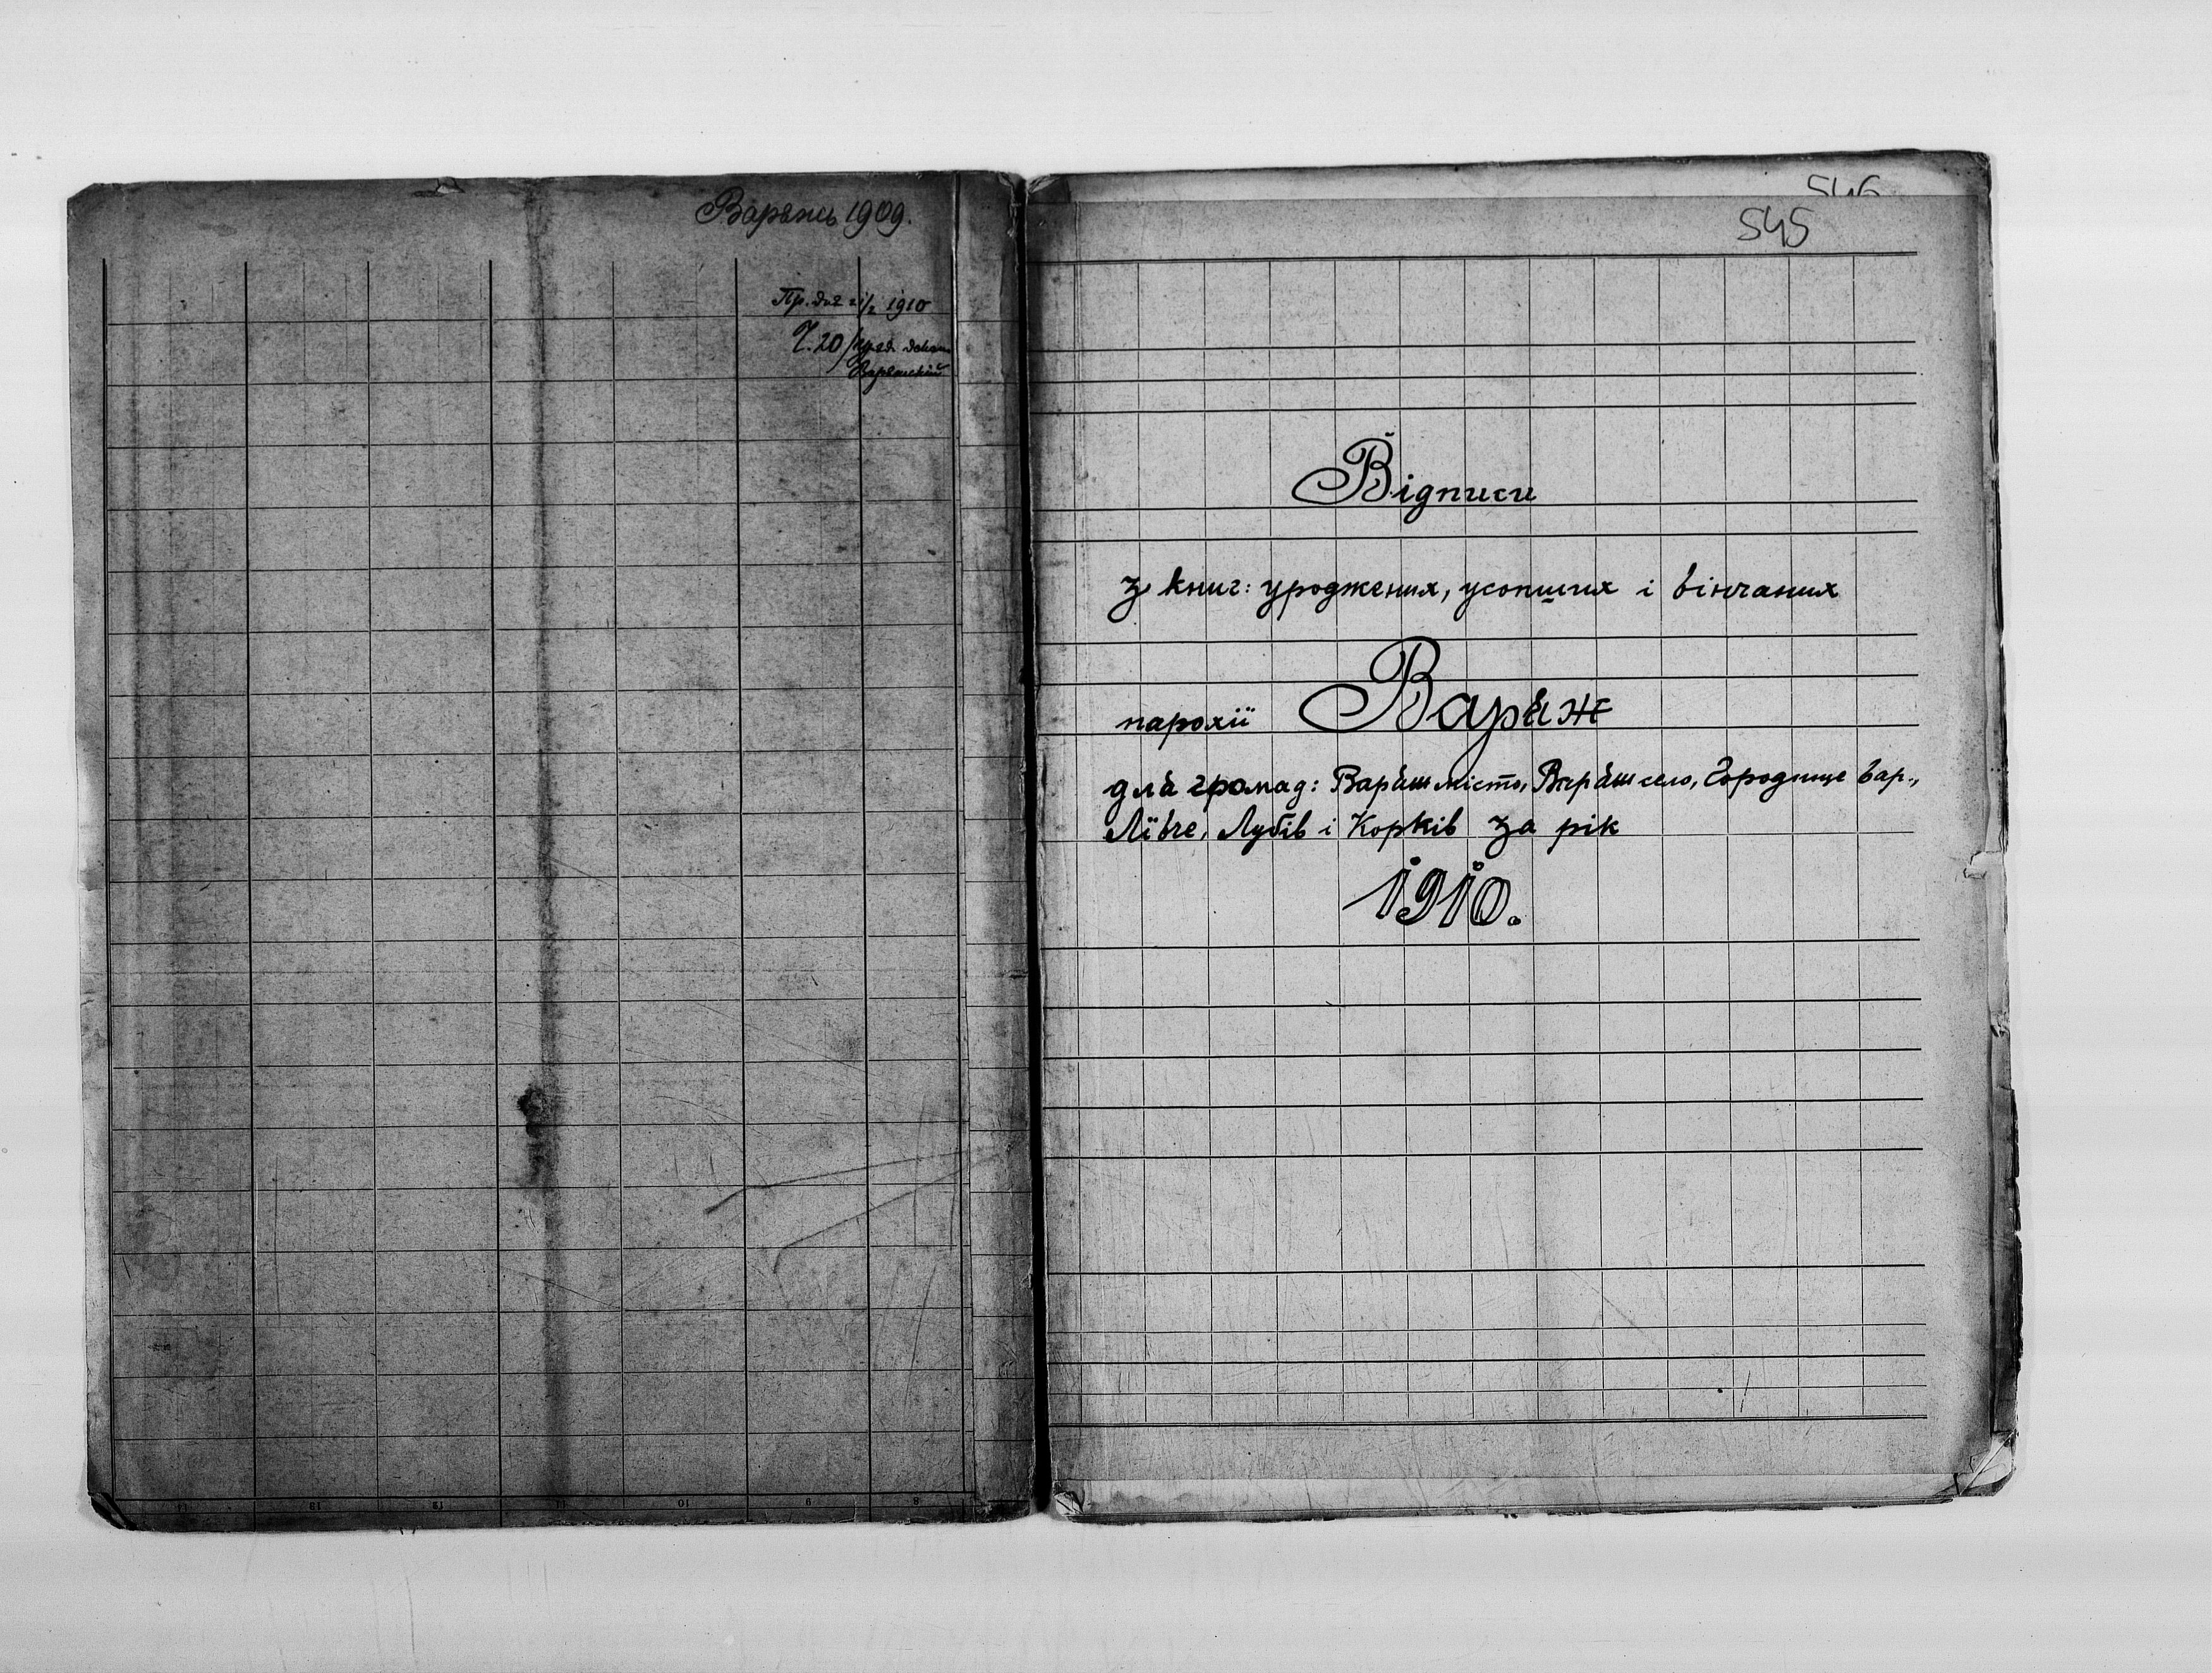 Варяжъ 1909.
Пр. дня 21/2 1910
Ч. 20/
546
545
Відписи
з книг: уроджених, усопших і вінчаних
парохії Варяж
для громад: Варяш місто, Варяш село, Городище вар.,
Лївче, Лубів і Корків за рік
1910.
14 13 12 11 10 9 8